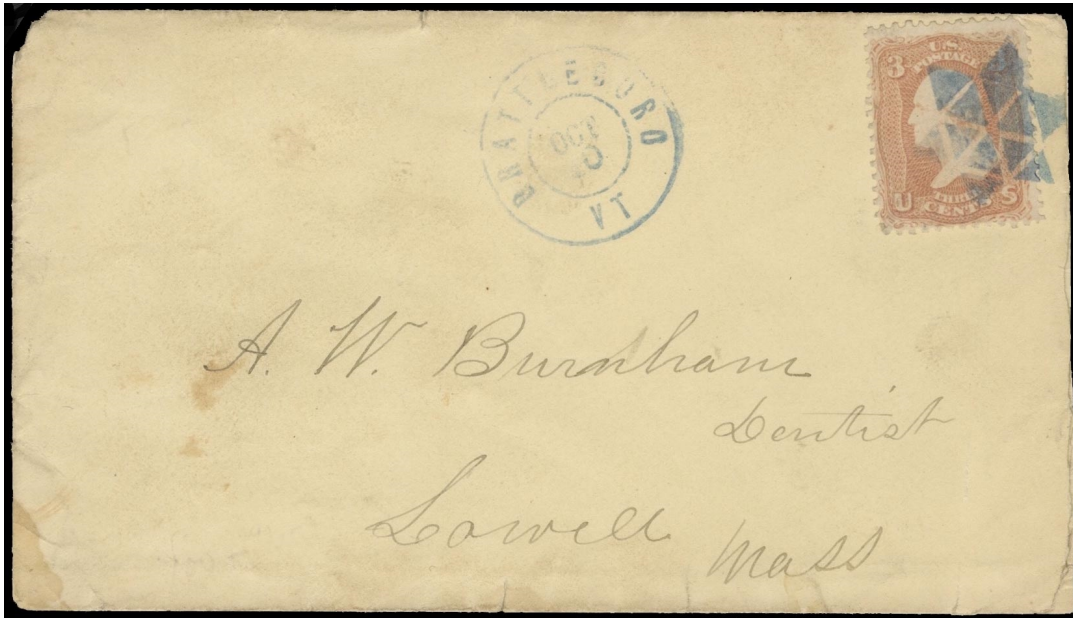 BRATTLEBORO VT
OCT
U.S.
POSTAGE
3
U CENTS S
A. W. Burnham
Dentist
Lowell Mass